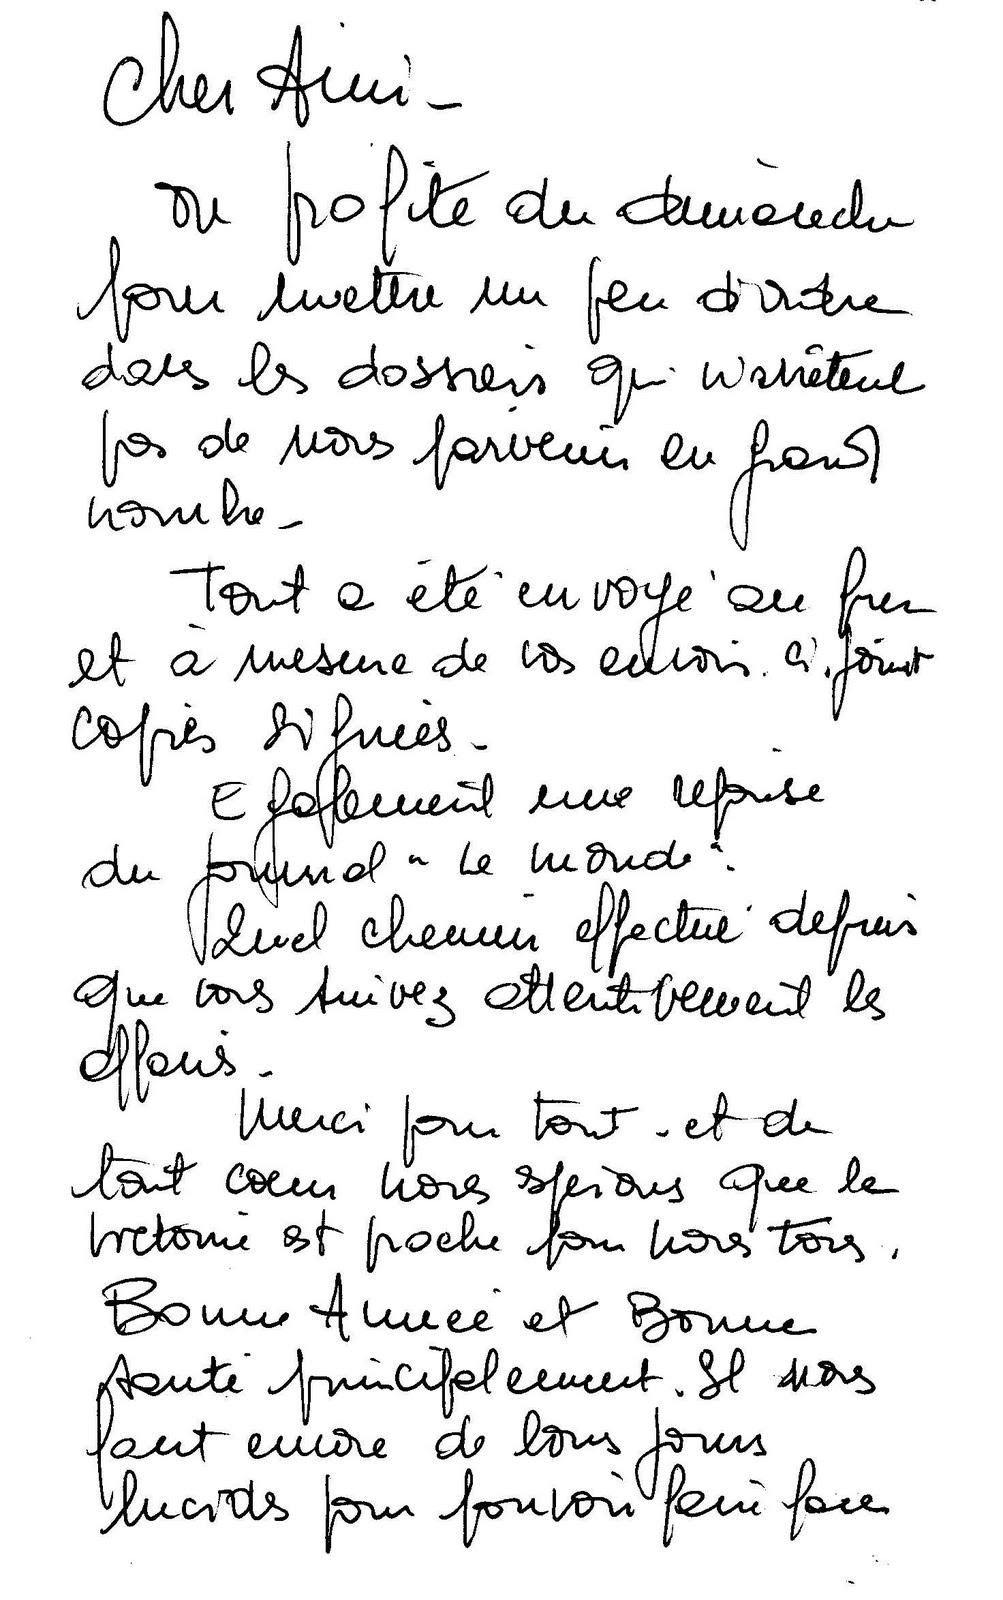 Cher Ami -
on profite du dimanche
pour mettre un peu d'ordre
dans les dossiers qui n'arrêtent
pas de nous parvenir en grand
nombre -
Tout a été envoyé au fur
et à mesure de vos envois. Ci. joint
copies signées -
Egalement une reprise
du journal " Le Monde ".
Quel chemin effectué depuis
que vous suivez attentivement les
affaires -
Merci pour tout - et de
tout coeur nous espérons que la
victoire est proche pour nous tous.
Bonne Année et Bonne
santé principalement. Il nous
faut encore de bons jours
lucides pour pouvoir faire face